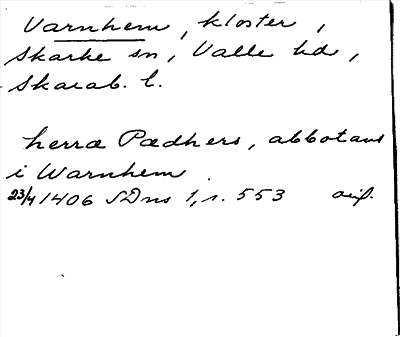 Varnhem, kloster,
Skarke sn, Valle hd,
Skarab. l.
herra Pædhers, abbotans
i Warnhem
23/4 1406 SDns 1, s. 553 orig.